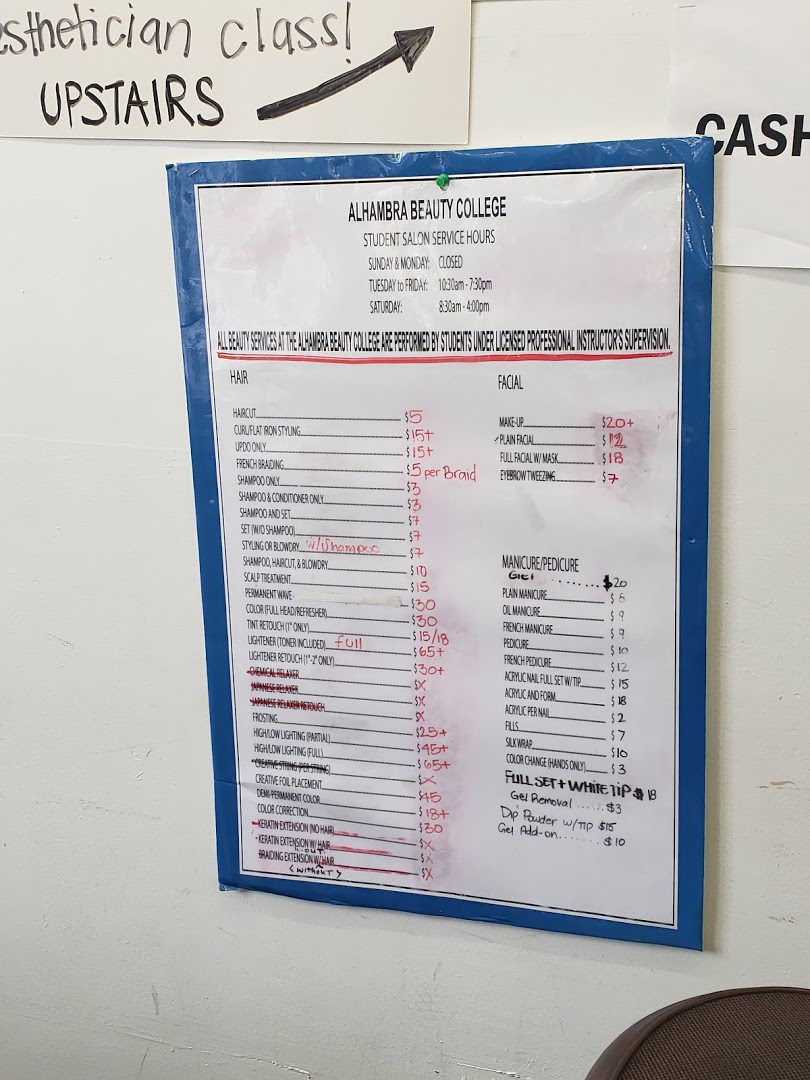 esthetician class!
UPSTAIRS
CASH
ALHAMBRA BEAUTY COLLEGE
STUDENT SALON SERVICE HOURS
SUNDAY & MONDAY: CLOSED
TUESDAY to FRIDAY: 10:30am - 7:30pm
SATURDAY: 8:30am - 4:00pm
ALL BEAUTY SERVICES AT THE ALHAMBRA BEAUTY COLLEGE ARE PERFORMED BY STUDENTS UNDER LICENSED PROFESSIONAL INSTRUCTOR'S SUPERVISION.
HAIR
HAIRCUT $5
CURL/FLAT IRON STYLING $15+
UPDO ONLY $15+
FRENCH BRAIDING $5 per Braid
SHAMPOO ONLY $3
SHAMPOO & CONDITIONER ONLY $3
SHAMPOO AND SET $7
SET (W/O SHAMPOO) $7
STYLING OR BLOWDRY w/Shampoo $7
SHAMPOO, HAIRCUT, & BLOWDRY $10
SCALP TREATMENT $15
PERMANENT WAVE $30
COLOR (FULL HEAD/REFRESHER) $30
TINT RETOUCH (1" ONLY) $15/18
LIGHTENER (TONER INCLUDED) Full $65+
LIGHTENER RETOUCH (1"-2" ONLY) $30+
CHEMICAL RELAXER $X
JAPANESE RELAXER $X
JAPANESE RELAXER RETOUCH $X
FROSTING $25+
HIGH/LOW LIGHTING (PARTIAL) $45+
HIGH/LOW LIGHTING (FULL) $65+
CREATIVE STRING (PER STRING) $X
CREATIVE FOIL PLACEMENT $45
DEMI-PERMANENT COLOR $18+
COLOR CORRECTION $30
KERATIN EXTENSION (NO HAIR) $X
KERATIN EXTENSION W/ HAIR $X
out
BRAIDING EXTENSION W/ HAIR $X
(without)
FACIAL
MAKE-UP $20+
PLAIN FACIAL $12
FULL FACIAL W/ MASK $18
EYEBROW TWEEZING $7
MANICURE/PEDICURE
Gel ........ $20
PLAIN MANICURE $8
OIL MANICURE $9
FRENCH MANICURE $9
PEDICURE $10
FRENCH PEDICURE $12
ACRYLIC NAIL FULL SET W/ TIP $15
ACRYLIC AND FORM $18
ACRYLIC PER NAIL $2
FILLS $7
SILK WRAP $10
COLOR CHANGE (HANDS ONLY) $3
FULL SET + WHITE TIP $18
Gel Removal ..... $3
Dip Powder w/TIP $15
Gel Add-on ....... $10